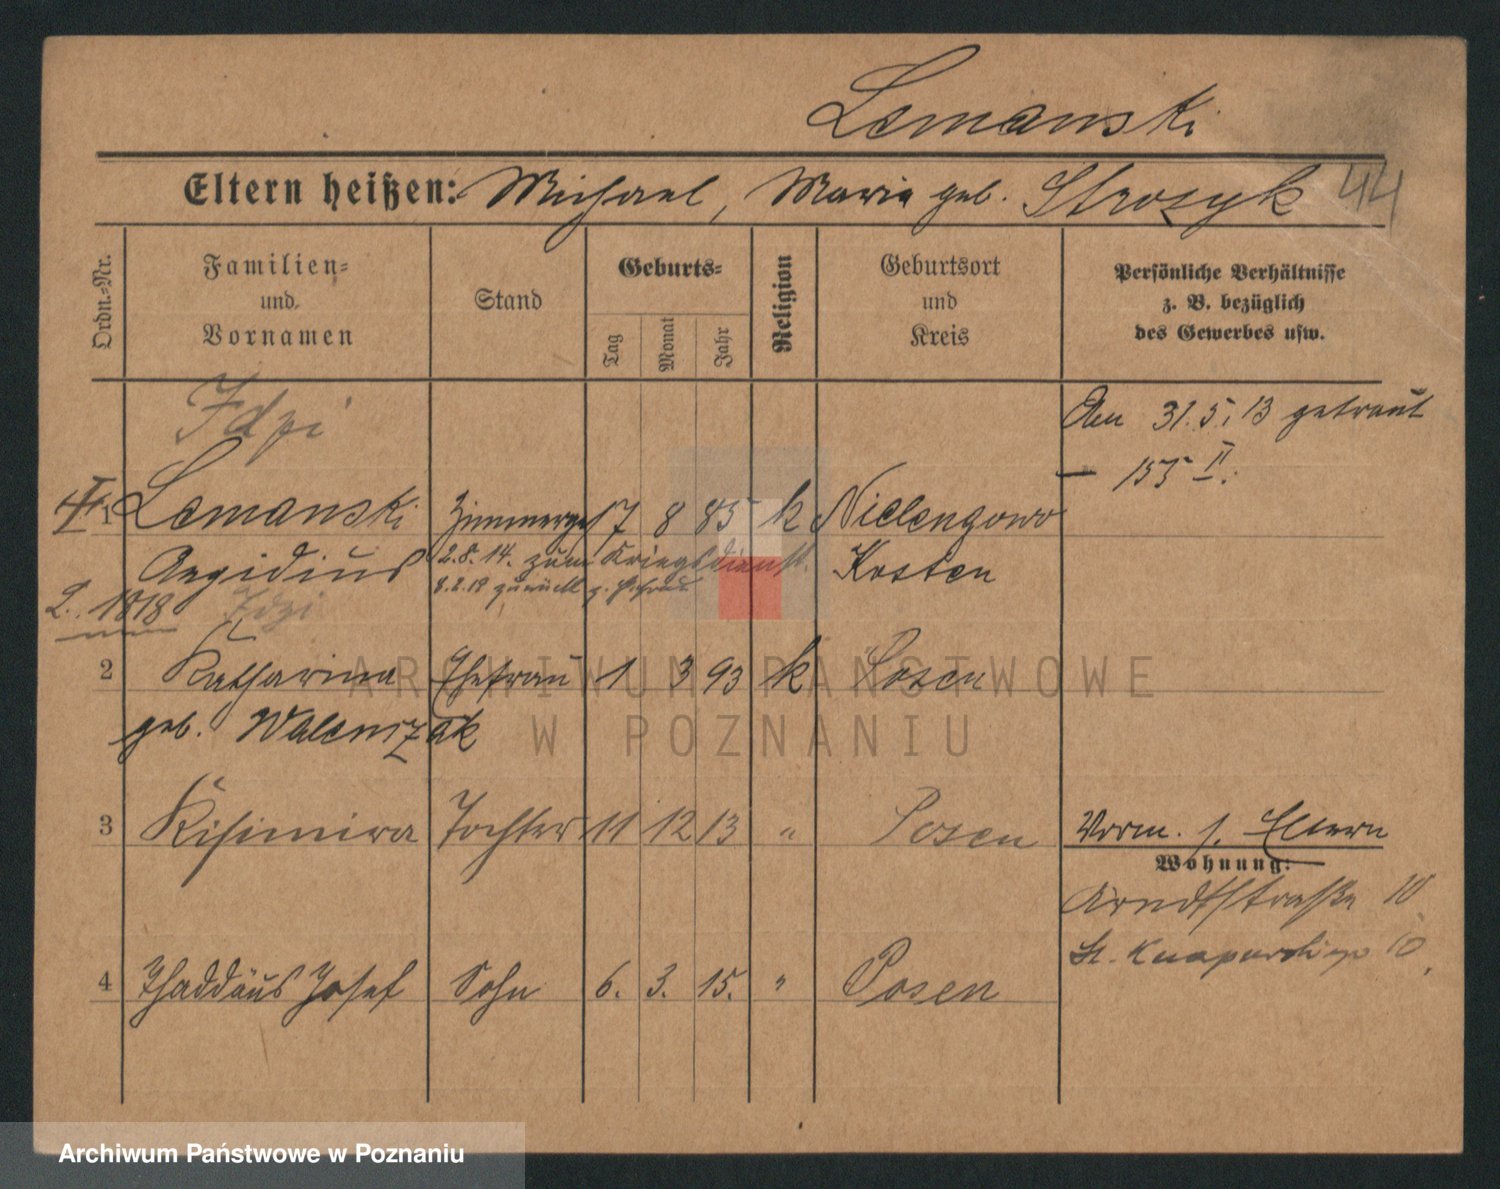 Lemanski
Eltern heißen: Michael, Marie geb. Strozyk 44
Ordn.-Nr.
Familien- und Vornamen
Stand
Geburts-
Tag
Monat
Jahr
Religion
Geburtsort und Kreis
Persönliche Verhältnisse z. B. bezüglich des Gewerbes usw.
Idzi
Am 31.5.13 getraut
— 155 II.
1 Lemanski Zimmerges 17 8 85 k Nielengowo
Aegidius 2.8.14. zum Kriegsdienst. Kosten
8.2.19 zurück z. Ehefrau
L. 1818 Idzi
2 Katharina Ehefrau 1 3 93 k Posen
geb. Walenizak
3 Kasimira Tochter 11 12 13 " Posen
Vorm. s. Eltern
Wohnung:
Arndtstraße 10
St. 10
4 Thaddäus Josef Sohn 6. 3. 15. " Posen
ARCHIWUM PAŃSTWOWE
W POZNANIU
Archiwum Państwowe w Poznaniu